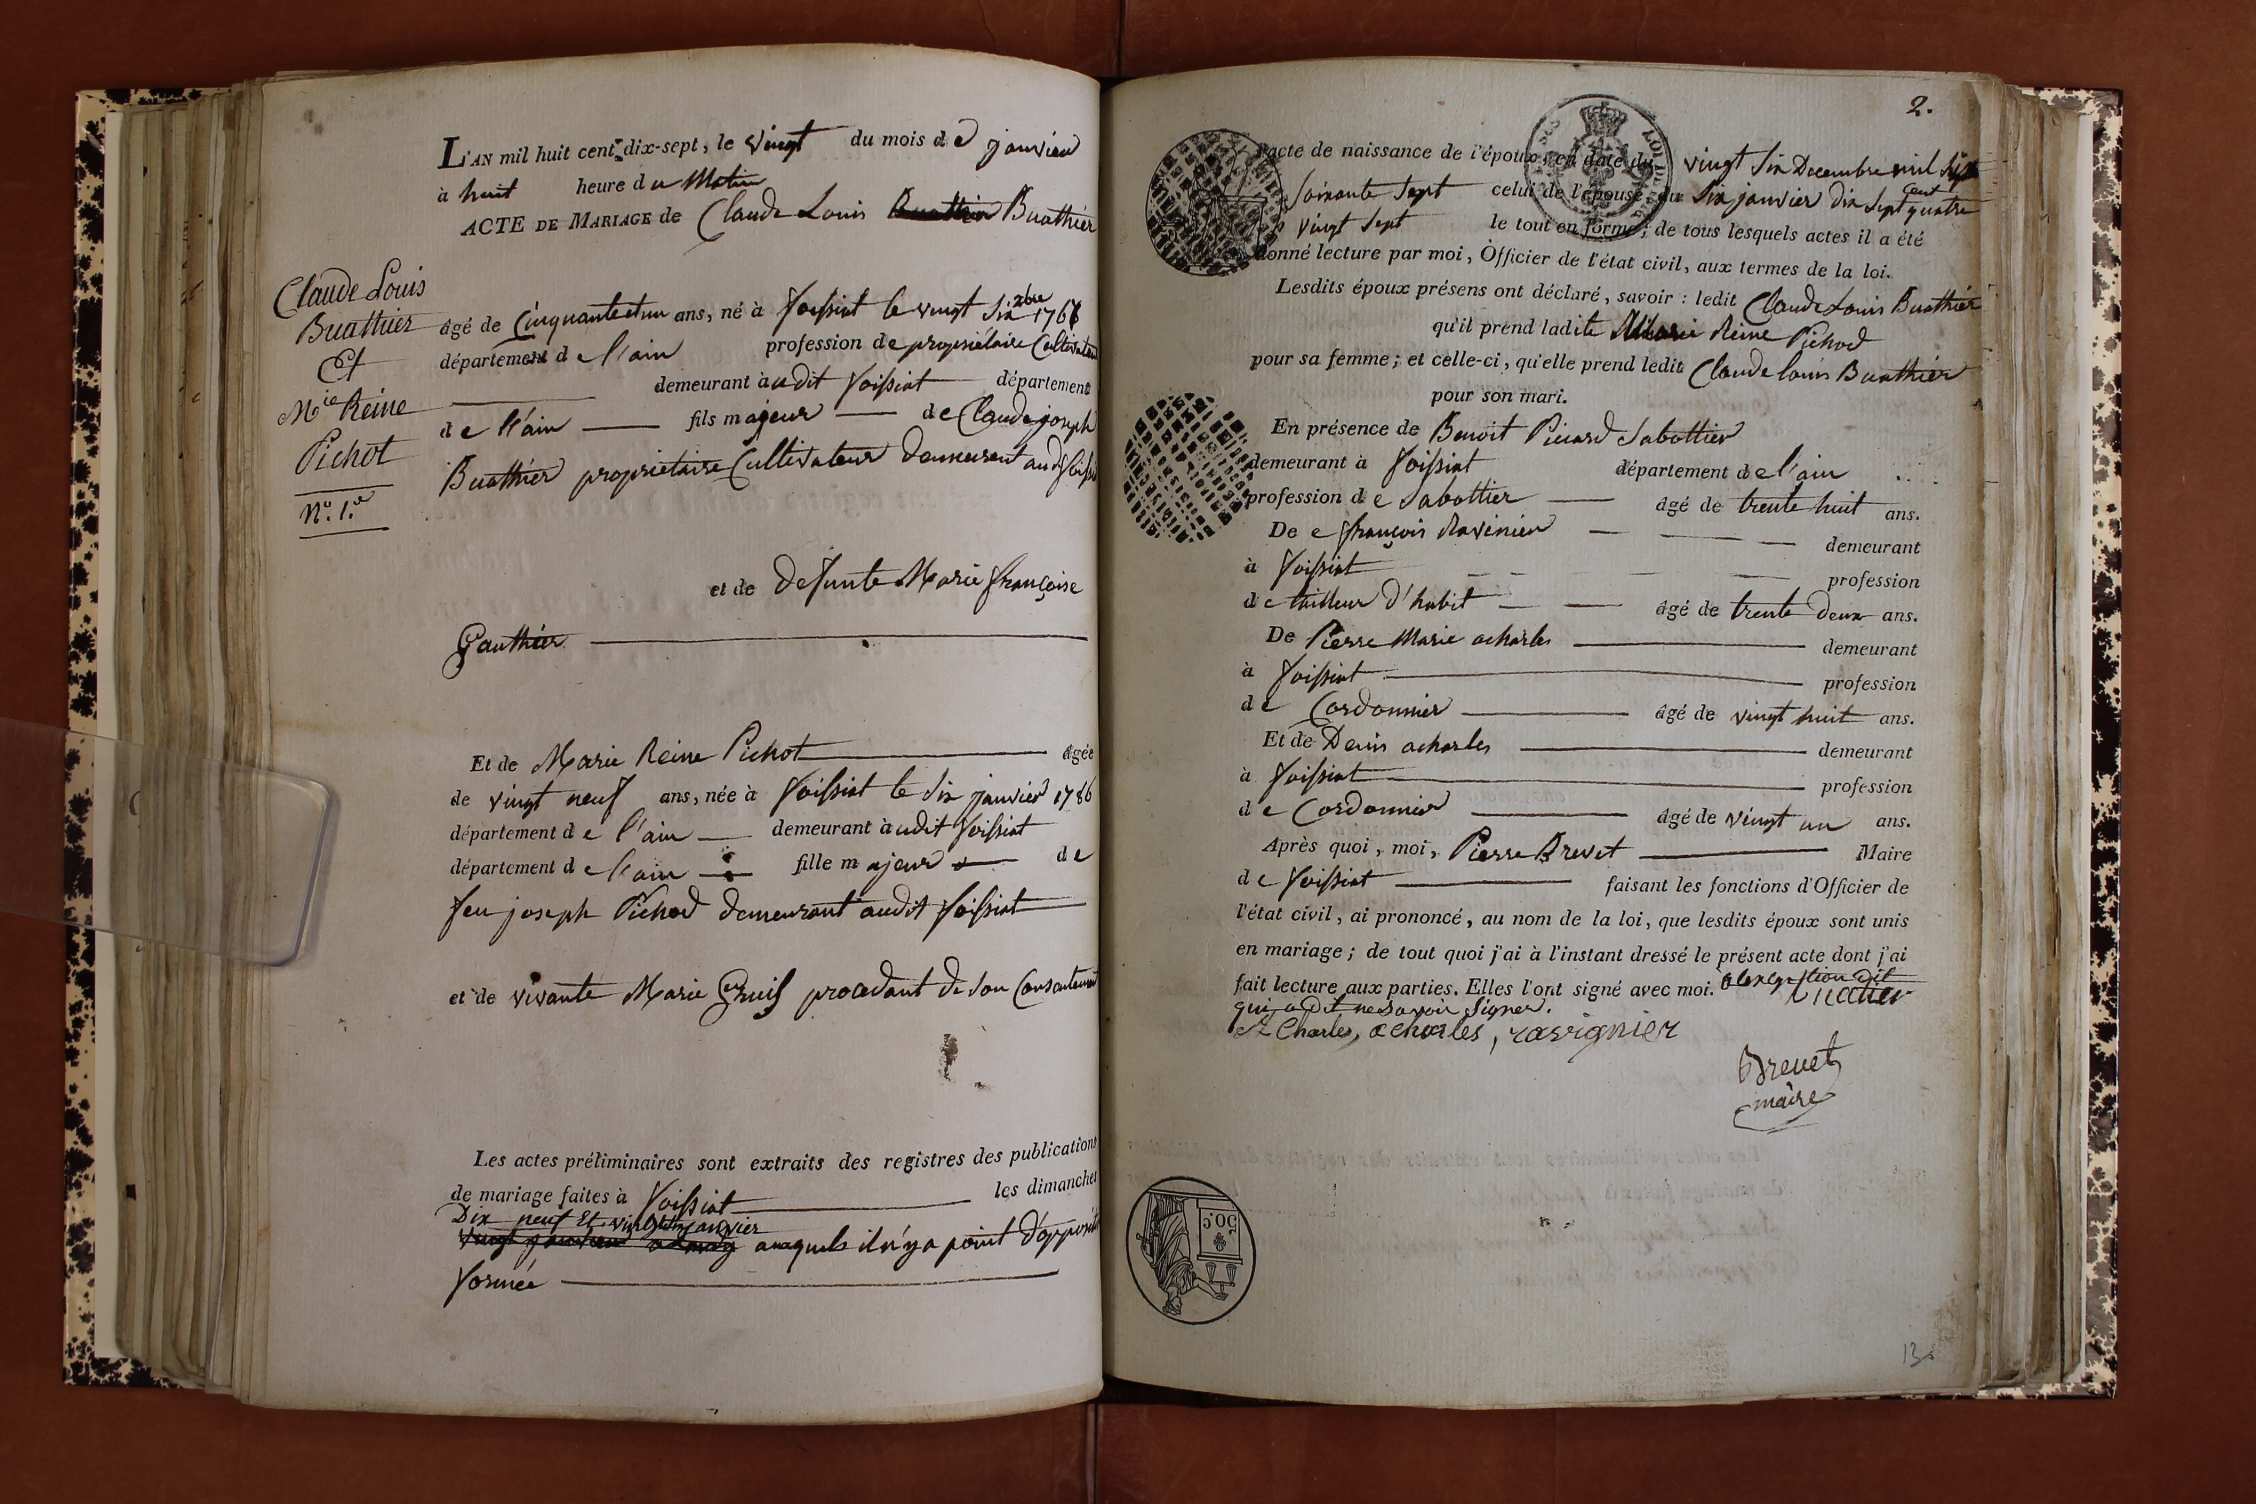 L'AN mil huit cent dix-sept, le vingt du mois de janvier
à huit heure du Matin
ACTE DE MARIAGE de Claude Louis Buathier
Claude Louis
Buathier
Et
Mie Reine
Pichot
N.° 1.er
âgé de Cinquante et un ans, né à foissiat le vingt Six xbre 1768
département de l'ain profession de propriétaire Cultivateur
demeurant audit foissiat département
de l'ain fils majeur de Claude joseph
Buathier propriétaire Cultivateur demeurant audit foissiat
et de defunte Marie françoise
Gauthier
Et de Marie Reine Pichot âgée
de vingt neuf ans, née à foissiat le Six janvier 1786
département de l'ain demeurant audit foissiat
département de l'ain fille majeur de
feu joseph Pichod demeurant audit foissiat
et de vivante Marie procedant de son Consentement
Les actes préliminaires sont extraits des registres des publications
de mariage faites à foissiat les dimanches
Dix neuf Et vingt six janvier
auxquels il n'y a point d'opposition
formée
2.
l'acte de naissance de l'époux, en date du vingt Six Decembre mil Sept
Soixante Sept celui de l'épouse, du Six janvier dix Sept cent quatre
vingt Sept le tout en forme; de tous lesquels actes il a été
donné lecture par moi, Officier de l'état civil, aux termes de la loi.
Lesdits époux présens ont déclaré, savoir : ledit Claude Louis Buathier
qu'il prend ladite Marie Reine Pichod
pour sa femme; et celle-ci, qu'elle prend ledit Claude louis Buathier
pour son mari.
En présence de Benoit Picard Sabottier
demeurant à foissiat département de l'ain
profession de Sabottier âgé de trente huit ans.
De françois Ravinier demeurant
à foissiat profession
de tailleur d'habit âgé de trente deux ans.
De Pierre Marie acharles demeurant
à foissiat profession
de Cordonnier âgé de vingt huit ans.
Et de Denis acharles demeurant
à foissiat profession
de Cordonnier âgé de vingt un ans.
Après quoi, moi, Pierre Brevet Maire
de foissiat faisant les fonctions d'Officier de
l'état civil, ai prononcé, au nom de la loi, que lesdits époux sont unis
en mariage; de tout quoi j'ai à l'instant dressé le présent acte dont j'ai
fait lecture aux parties. Elles l'ont signé avec moi.
qui a dit ne savoir Signer.
A Charles, acharles, ravignier
Brevet
maire
50 c.
13